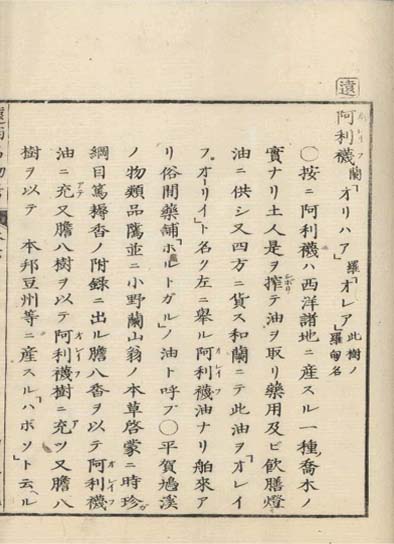 遠
阿利襪 蘭「オリハア」 羅「オレア」 此樹ノ羅甸名
オレイフ
〇按ニ阿利襪ハ西洋諸地ニ産スル一種喬木ノ
實ナリ土人是ヲ搾テ油ヲ取リ藥用及ビ飲膳燈
シボリ
油ニ供シ又四方ニ貨ス和蘭ニテ此油ヲ「オレイ
フ、オーリイ」ト名ク左ニ舉ル阿利襪油ナリ舶來ア
オレイフ
リ俗間藥鋪「ホルトガル」ノ油ト呼ブ〇平賀鳩溪
ノ物類品隲並ニ小野蘭山翁ノ本草啓蒙ニ時珍
ガ
綱目篤耨香ノ附録ニ出ル膽八香ヲ以テ阿利襪
オレイフ
油ニ充又膽八樹ヲ以テ阿利襪樹ニ充ツ又膽八
アテ オレイフ ア
樹ヲ以テ 本邦豆州等ニ産スル「ハボソ」ト云ヘル